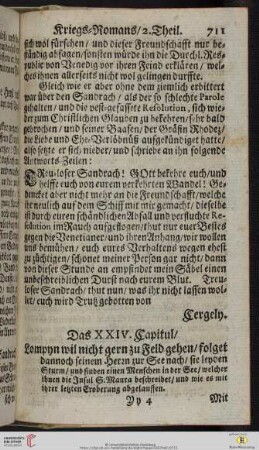 Kriegs-Romans/ 2. Theil. 711
sich wol fürsehen/ und dieser Freundschafft nur be-
ständig absagen/ sonsten würde ihn die Durchl. Res-
public von Venedig vor ihren Feind erklären/ wel-
ches ihnen allerseits nicht wol gelingen durffte.
Gleich wie er aber ohne dem ziemlich erbittert
war über den Sandrach/ als der so schlechte Parole
gehalten/ und die vest-gefassete Resolution, sich wie-
der zum Christlichen Glauben zu bekehren/ sehr bald
gebrochen/ und seiner Baasen/ der Gräfin Rhodez/
die Liebe und Ehe-Verlöbnüß aufgekündiget hatte/
also setzte er sich nieder/ und schriebe an ihn folgende
Antworts-Zeilen:
TReuloser Sandrach! GOtt bekehre euch/ und
helffe euch von eurem verkehrten Wandel! Ge-
mahnet aber nicht mehr an die Freundschafft/ welche
ihr neulich auf dem Schiff mit mir gemacht/ dieselbe
ist durch euren schändlichen Abfall und verfluchte Re-
solution im Rauch aufgeflogen/ thut nur euer Bestes
gegen die Venetianer/ und ihren Anhang/ wir wollen
uns bemühen/ euch eures Verhaltens wegen ehest
zu züchtigen/ schonet meiner Person gar nicht/ dann
von dieser Stunde an empfindet mein Säbel einen
unbeschreiblichen Durst nach eurem Blut. Treu-
loser Sandrach/ thut nun/ was ihr nicht lassen wol-
let/ euch wird Trutz gebotten von
Cergely.
Das XXIV. Capitul/
Lompyn wil nicht gern zu Feld gehen/ folget
dannoch seinem Herrn zur See nach/ sie leyden
Sturm/ und finden einen Menschen in der See/ welcher
ihnen die Insul S. Maura beschreibet/ und wie es mit
ihrer letzten Eroberung abgelauffen.
Yy 4 Mit